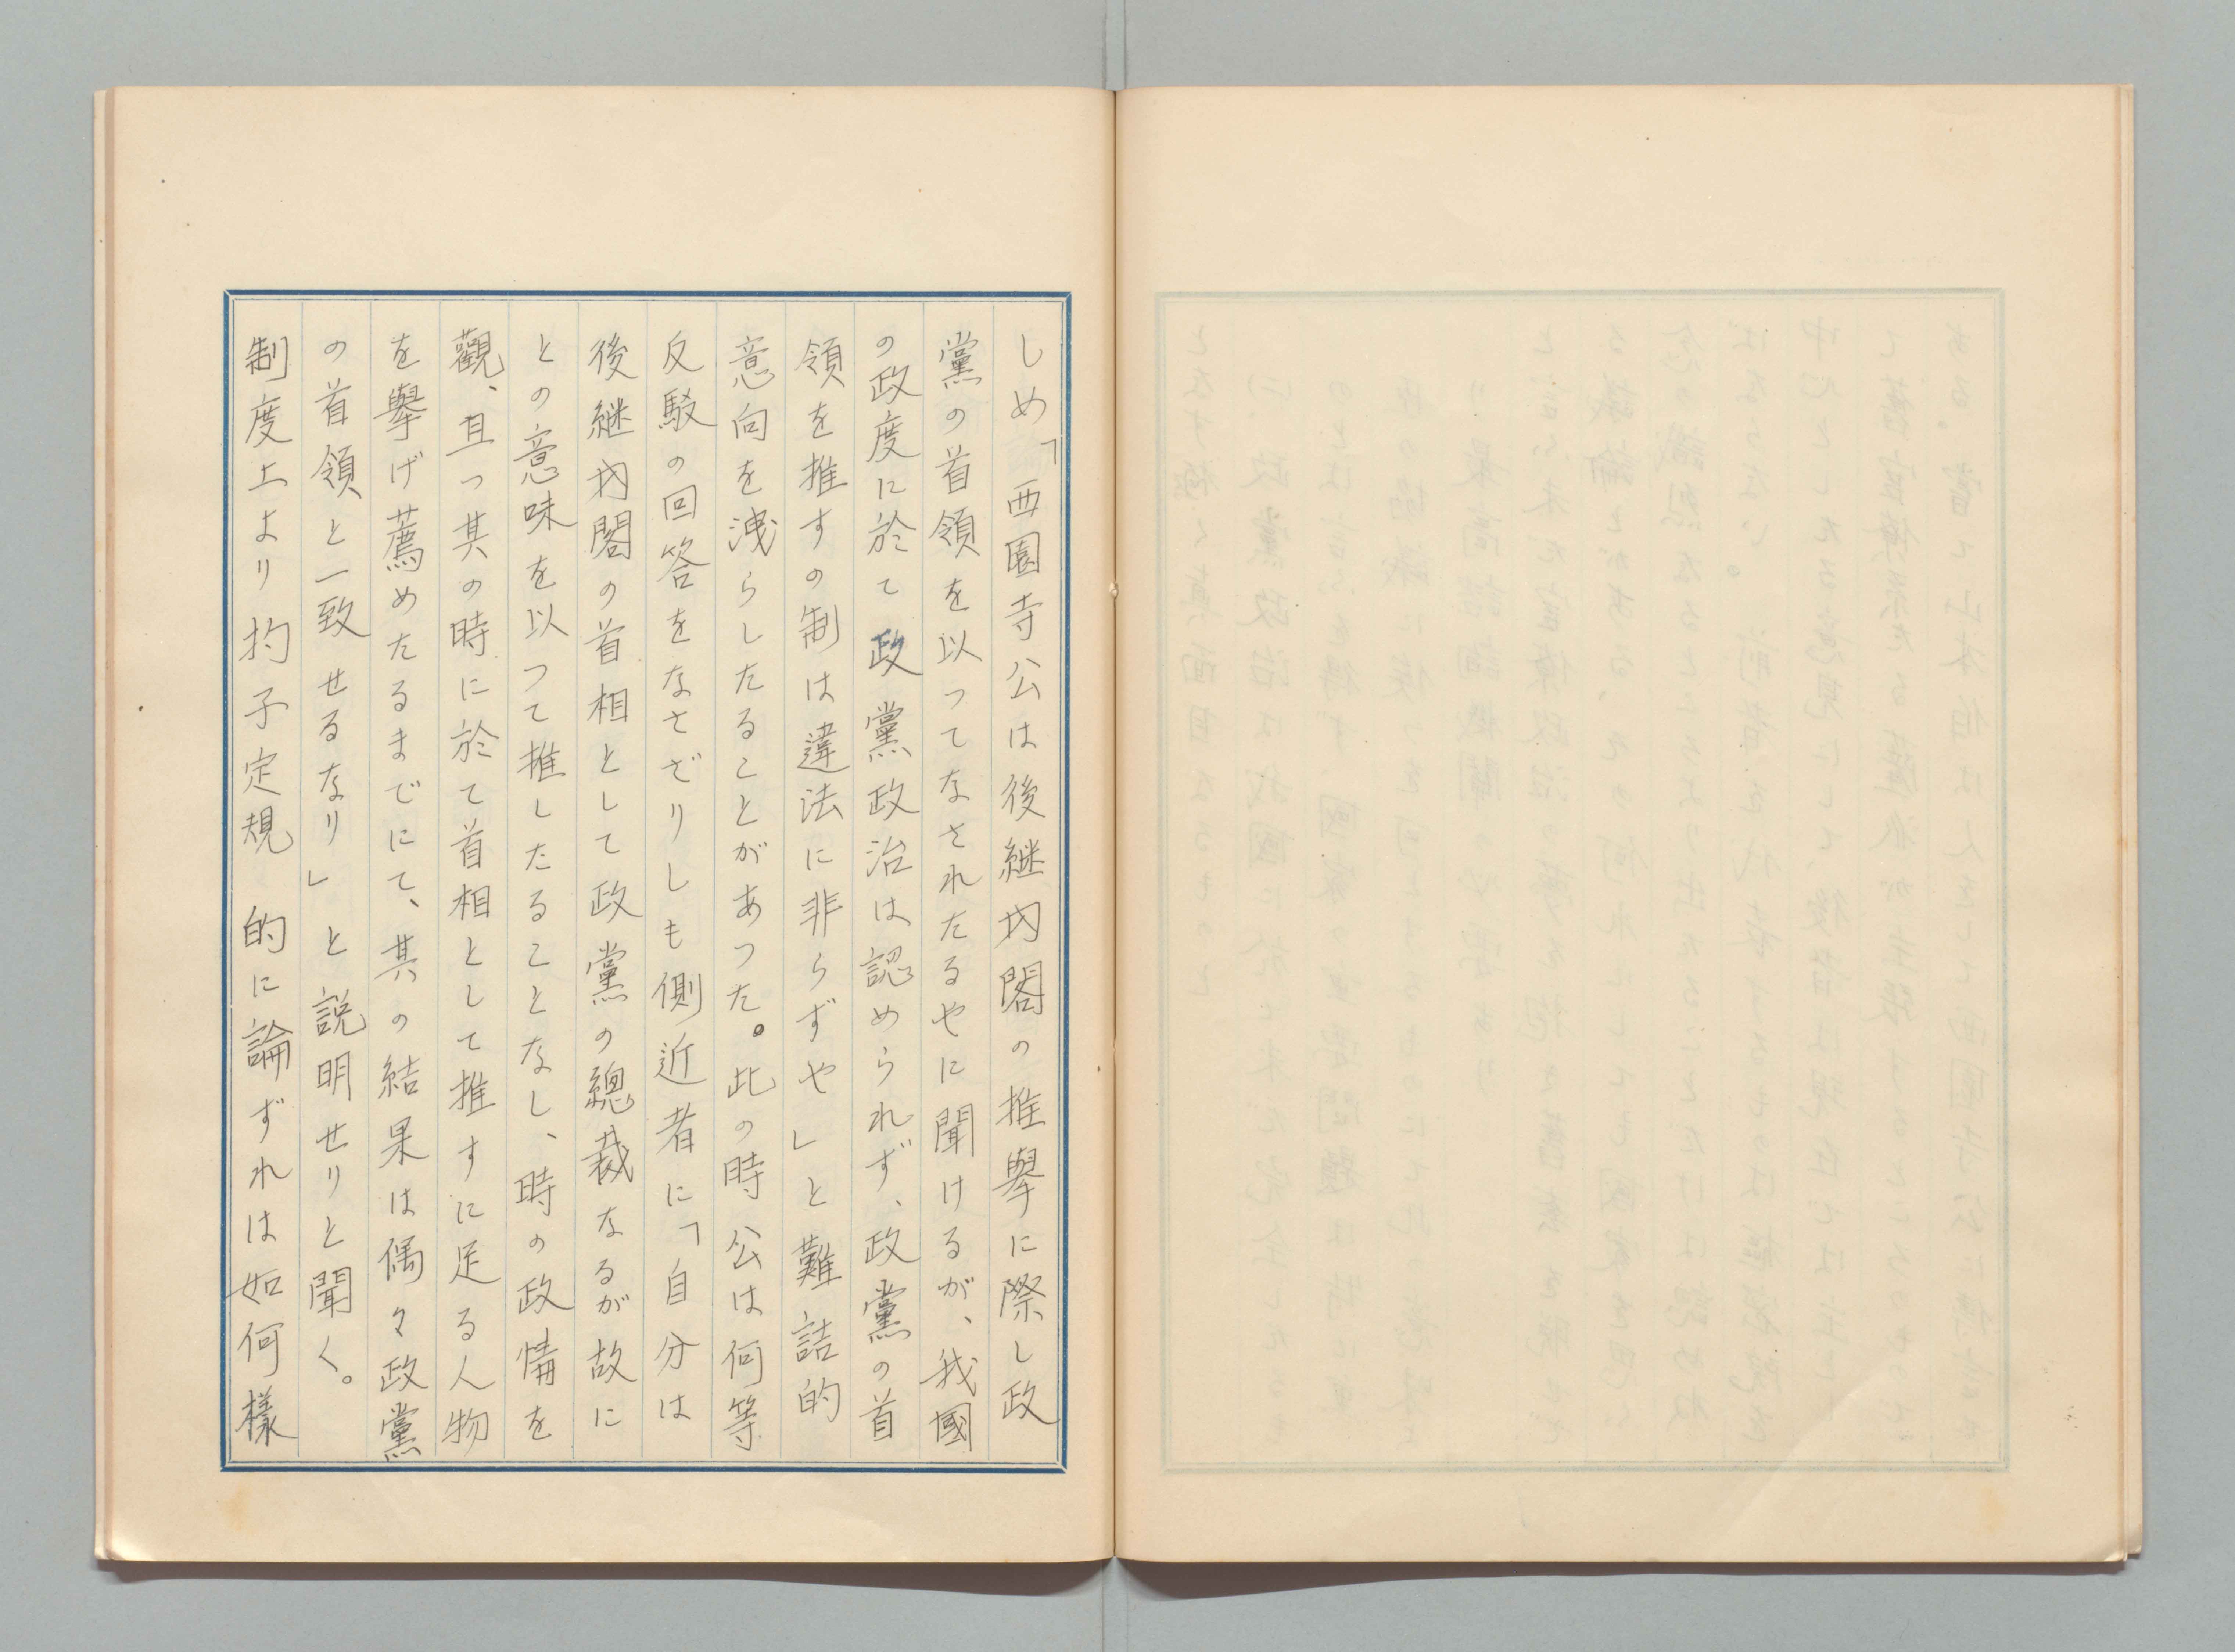 しめ「西園寺公は後継内閣の推擧に際し政
黨の首領を以つてなされたるやに聞けるが、我國
の政度に於て政黨政治は認められず、政黨の首
領を推すの制は違法に非らずや」と難詰的
意向を洩らしたることがあつた。此の時公は何等
反駁の回答をなさざりしも側近者に「自分は
後継内閣の首相として政黨の總裁なるが故に
との意味を以つて推したることなし、時の政情を
觀、且つ其の時に於て首相として推すに足る人物
を擧げ薦めたるまでにて、其の結果は偶々政黨
の首領と一致せるなり」と説明せりと聞く。
制度上より杓子定規的に論ずれは如何樣